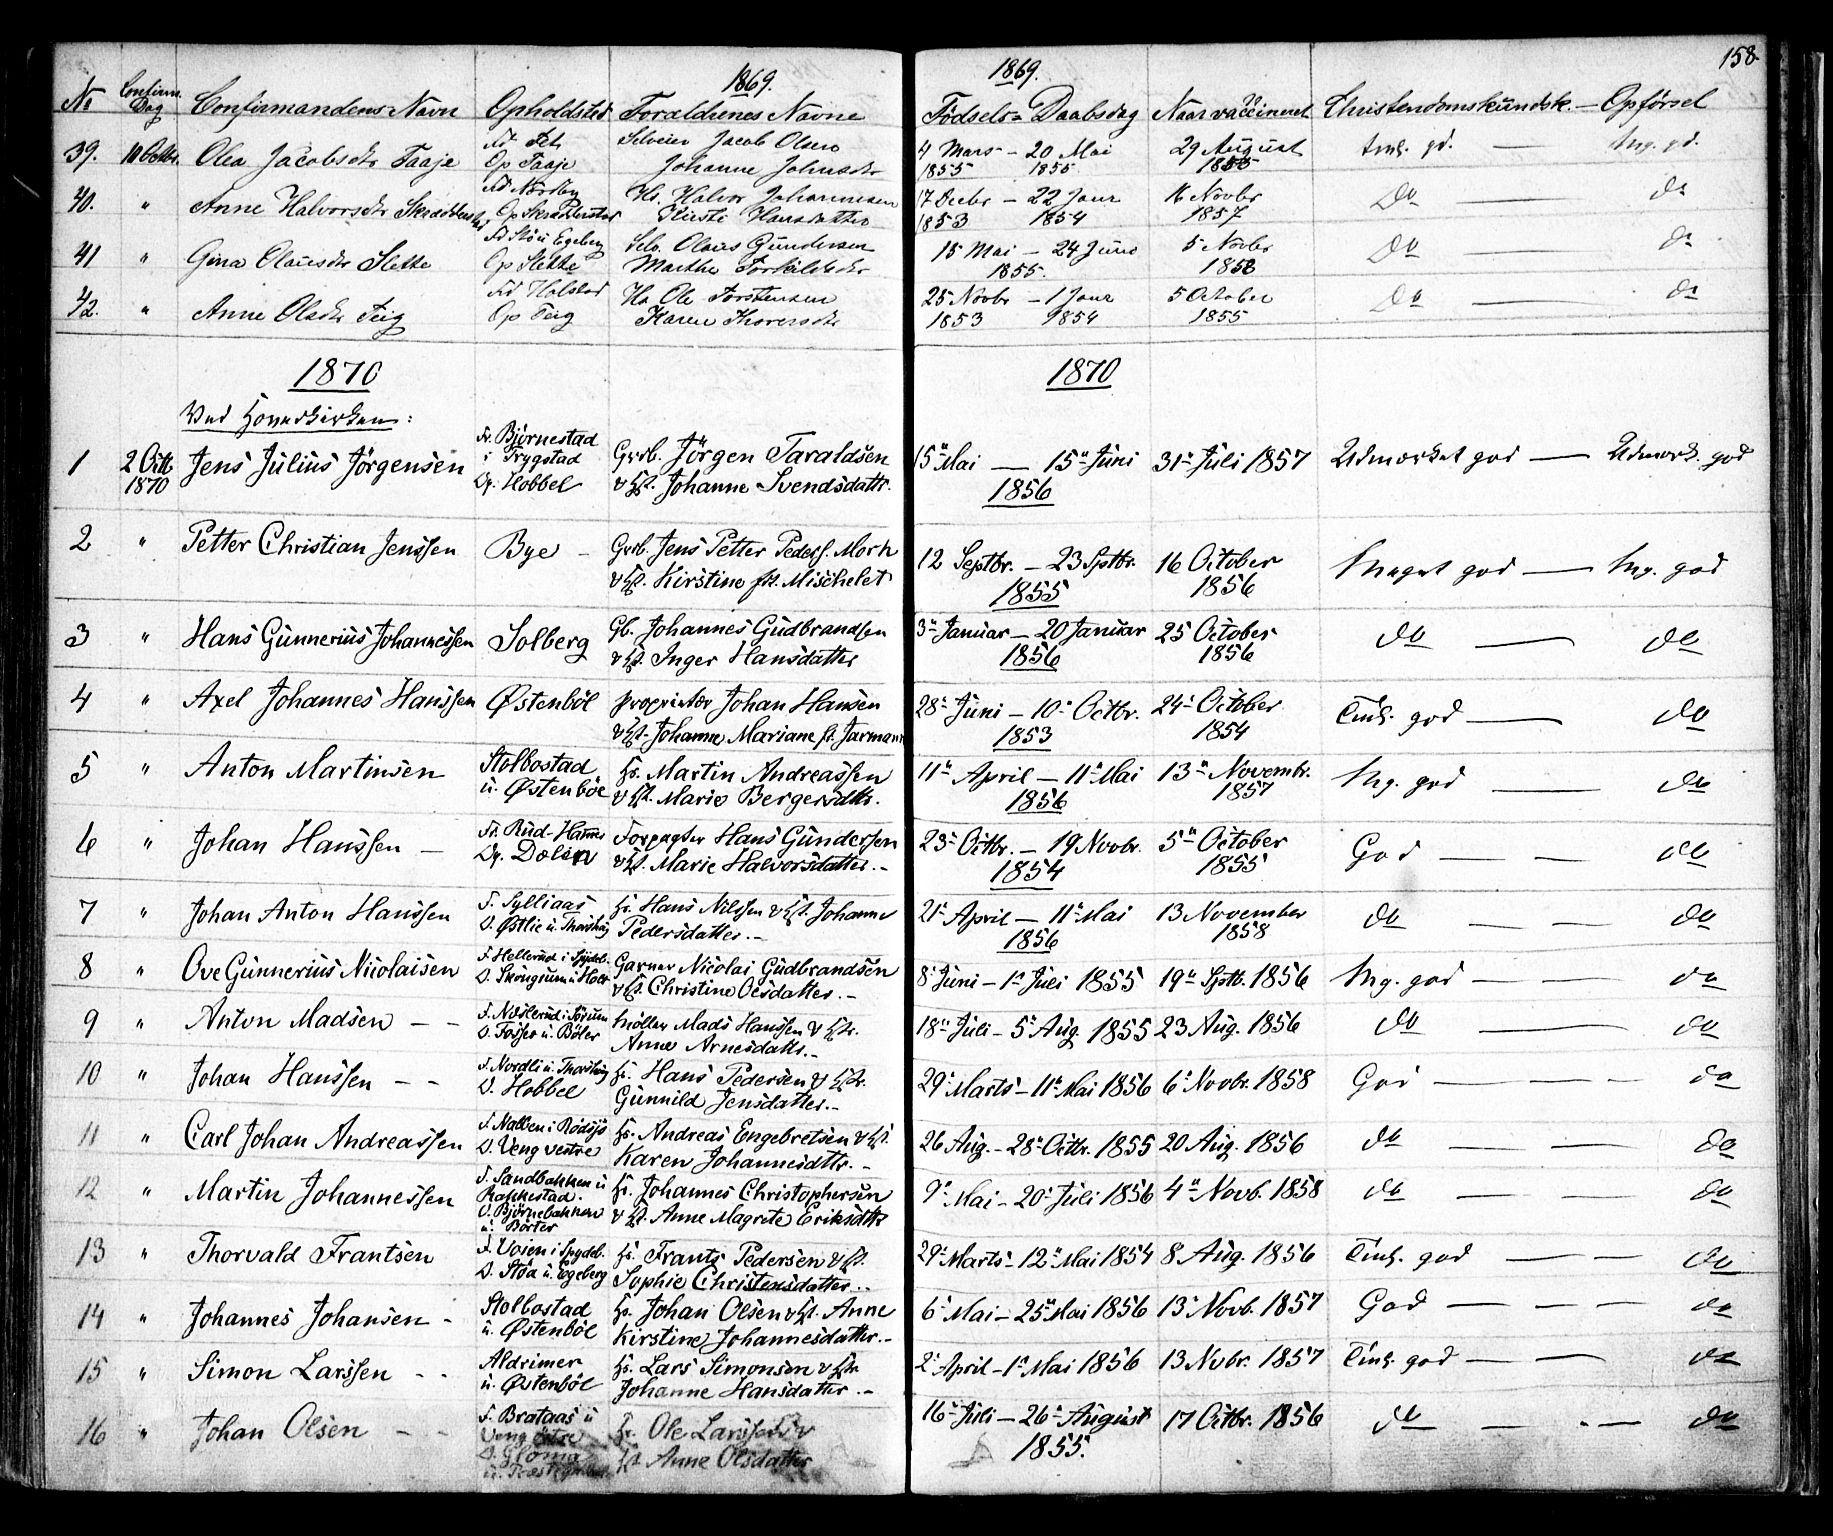 158
1869.
1869.
No Confirm. Dag Confirmandens Navn Opholdsted Forældrenes Navne Födsels= Daabsdag Naar vaccineret Christendomskundsk. — Opförsel
39. 10 Octbr. Olea Jacobsdr Taaje Op Taaje Jacob Olsen Johanne Johnsdr 4 Mars 1855 – 20 Mai 1855 29 August 1855 Tml. gd. — Mg. gd.
40. " Anne Halvorsdr Fd Nordby Halvor Johannesen Kirsti Hansdatter 17 Decbr 1853 – 22 Janr 1854 16 Novbr 1857 Do — do
41 " Gina Olausdr Slette Op Slette Selv. Olaus Gundersen Marthe Torkildsdr 15 Mai – 24 Juni 1855. 5 Novbr 1858 Do — do
42. " Anne Olsdr Teig Fd Holstad Op Teig Ole Torstensen Karen Thoresdr 25 Novbr 1853 – 1 Janr 1854 5 October 1855 Do — do
1870
1870
Ved Hovedkirken:
1 2 Octb 1870 Jens Julius Jörgensen Fr. Björnestad i Trygstad Op. Hobbel Grb. Jörgen Taraldsen & Hst. Johanne Svendsdattr. 15de Mai — 15de Juni 1856 31te Juli 1857 Udmærket god — Udmærk. god
2 " Petter Christian Jenssen Bye – Grb. Jens Petter Peders. Mörk & Hst. Kirstine fd. Mischelet 12 Septbr. – 23 Sptbr. 1855 16 October 1856 Meget god — Mg. god
3 " Hans Gunnerius Johannessen Solberg Gb. Johannes Gudbrandsen & Hst. Inger Hansdatter 3de Januar – 20 Januar 1856 25 October 1856 do — do
4 " Axel Johannes Hanssen Østenböl Proprietær Johan Hansen & Hst. Johanne Mariane fd. Jarmann 28de Juni – 10de Octbr. 1853 24de October 1854 Tml. god — do
5 " Anton Martinsen Stolbostad u. Østenböl Hs. Martin Andreassen & Hst. Marie Bergersdtr. 11te April – 11te Mai 1856 13de Novembr. 1857 Mg. god — do
6 " Johan Hanssen – Op. Dælen Forpagter Hans Gundersen & Hst. Marie Halvorsdatter. – 23de Octbr. – 19 Novbr. 1854 5te October 1855 God — — do
7 " Johan Anton Hanssen F. Sylliaas O. Østlie u. Thorshug Hs. Hans Nilssen & Hst. Johanne Pedersdatter. – 21de April – 11te Mai 1856 13 November 1858 do — — — do
8 " Ove Gunnerius Nicolaisen F. Hellerud i Spydeb. Garver Nicolai Gudbrandsen & Hst. Christine Olsdatter. – 8de Juni – 1te Juli 1855 19de Sptb. 1856 Mg. god — — do
9 " Anton Madsen – – O. Fosser u. Böler Möller Mads Hanssen & Hstr. Anne Arnesdattr. – 18de Juli – 5te Aug. 1855 23 Aug. 1856 do — — do
10 " Johan Hanssen – – F. Nordli u. Thorshug O. Hobbel Hs. Hans Pedersen & Hstr. Gunnild Jensdatter. – 29de Marts – 11te Mai 1856 6te Novbr. 1858 God — — – do
11 " Carl Johan Andreassen F. Nabben i Rödsjö O. Veng vestre Hs. Andreas Engebretsen & Hst. Karen Johannesdttr. – 26 Aug. – 28de Octbr. 1855 20 Aug. 1856 do — — — do
12 " Martin Johannessen F. Sandbakken u Rakkestad. O. Björnebakken u. Börter Hs. Johannes Christophersen & Hst. Anne Magrete Eriksdttr 9de Mai – 20de Juli 1856 4de Novb. 1858 do — — — do
13 " Thorvald Frantsen F. Voien i Spydeb. O. Stöa u. Egeberg Hs. Frants Pedersen & Hst. Sophie Christensdatter. – 29de Marts – 12te Mai 1854 8 Aug. 1856 Tml. god — — do
14 " Johannes Johansen – Stolbostad u. Østenböl Hs. Johan Olsen & Hst. Anne Kirstine Johannesdatter. – 6te Mai – 25de Mai 1856 13de Novb. 1857 God — — — do
15 " Simon Larssen – – Aldrimer u. Østenböl Hs. Lars Simonsen & Hstr Johanne Hansdatter. – 2de April – 1te Mai 1856 13 Nvbr. 1857 Tml. god — — do
16 " Johan Olsen – – F. Brataas u Veng østre O. Gloma Hs. Ole Larssen & Hst. Anne Olsdatter 16de Juli – 26de August 1855. 17 Octbr. 1856 do — – — do